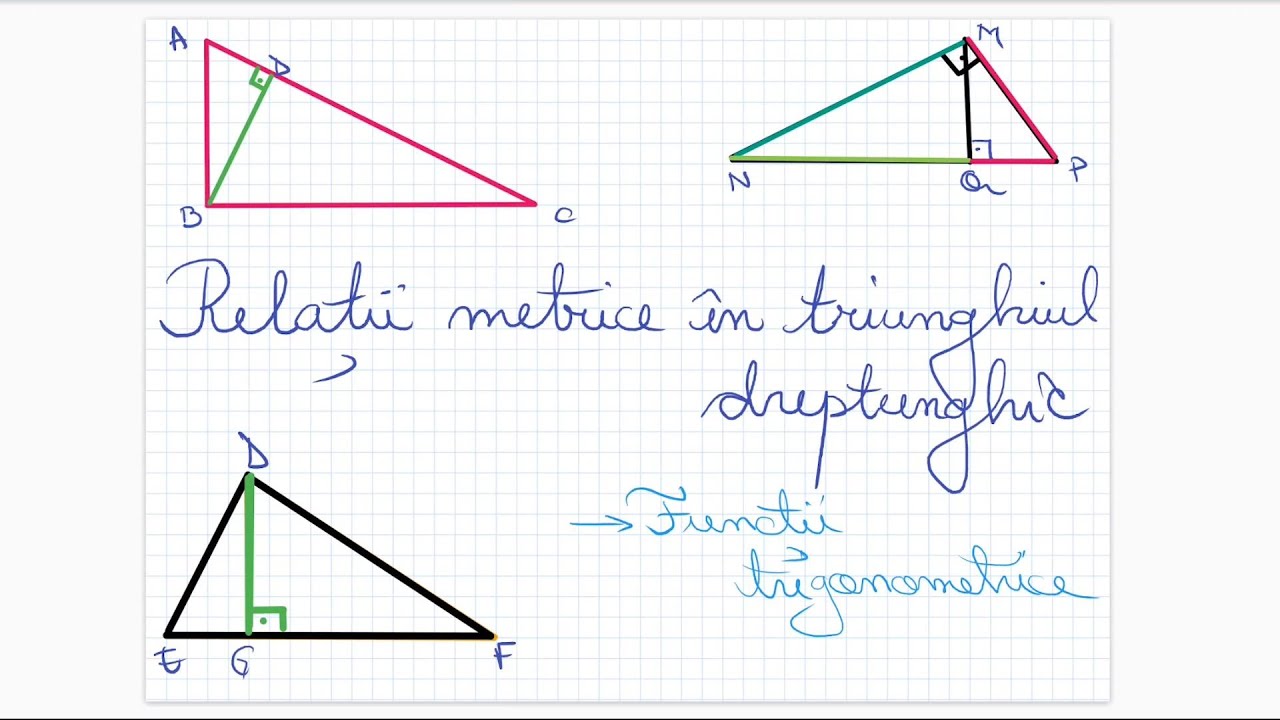 A
D
B
C
M
N
Q
P
Relații metrice în triunghiul
dreptunghic
D
E
G
F
→ Funcții
trigonometrice